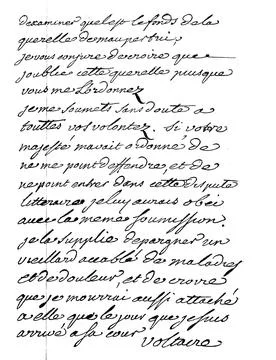 dexaminer quel est le fonds dela
querelle de maupertui;
je vous conjure de croire que
joublie cette querelle puisque
vous me lordonnez
je me soumets sans doute a
touttes vos volontez. si votre
majesté mavait ordonné de
ne me point deffendre, et de
ne point entrer dans cette dispute
litteraire je luy aurais obei
avec la meme soumission.
je la supplie depargner un
vieillard accablé de maladies
et de douleur, et de croire
que je mourrai aussi attaché
a elle que le jour que je suis
arrivé a sa cour
voltaire